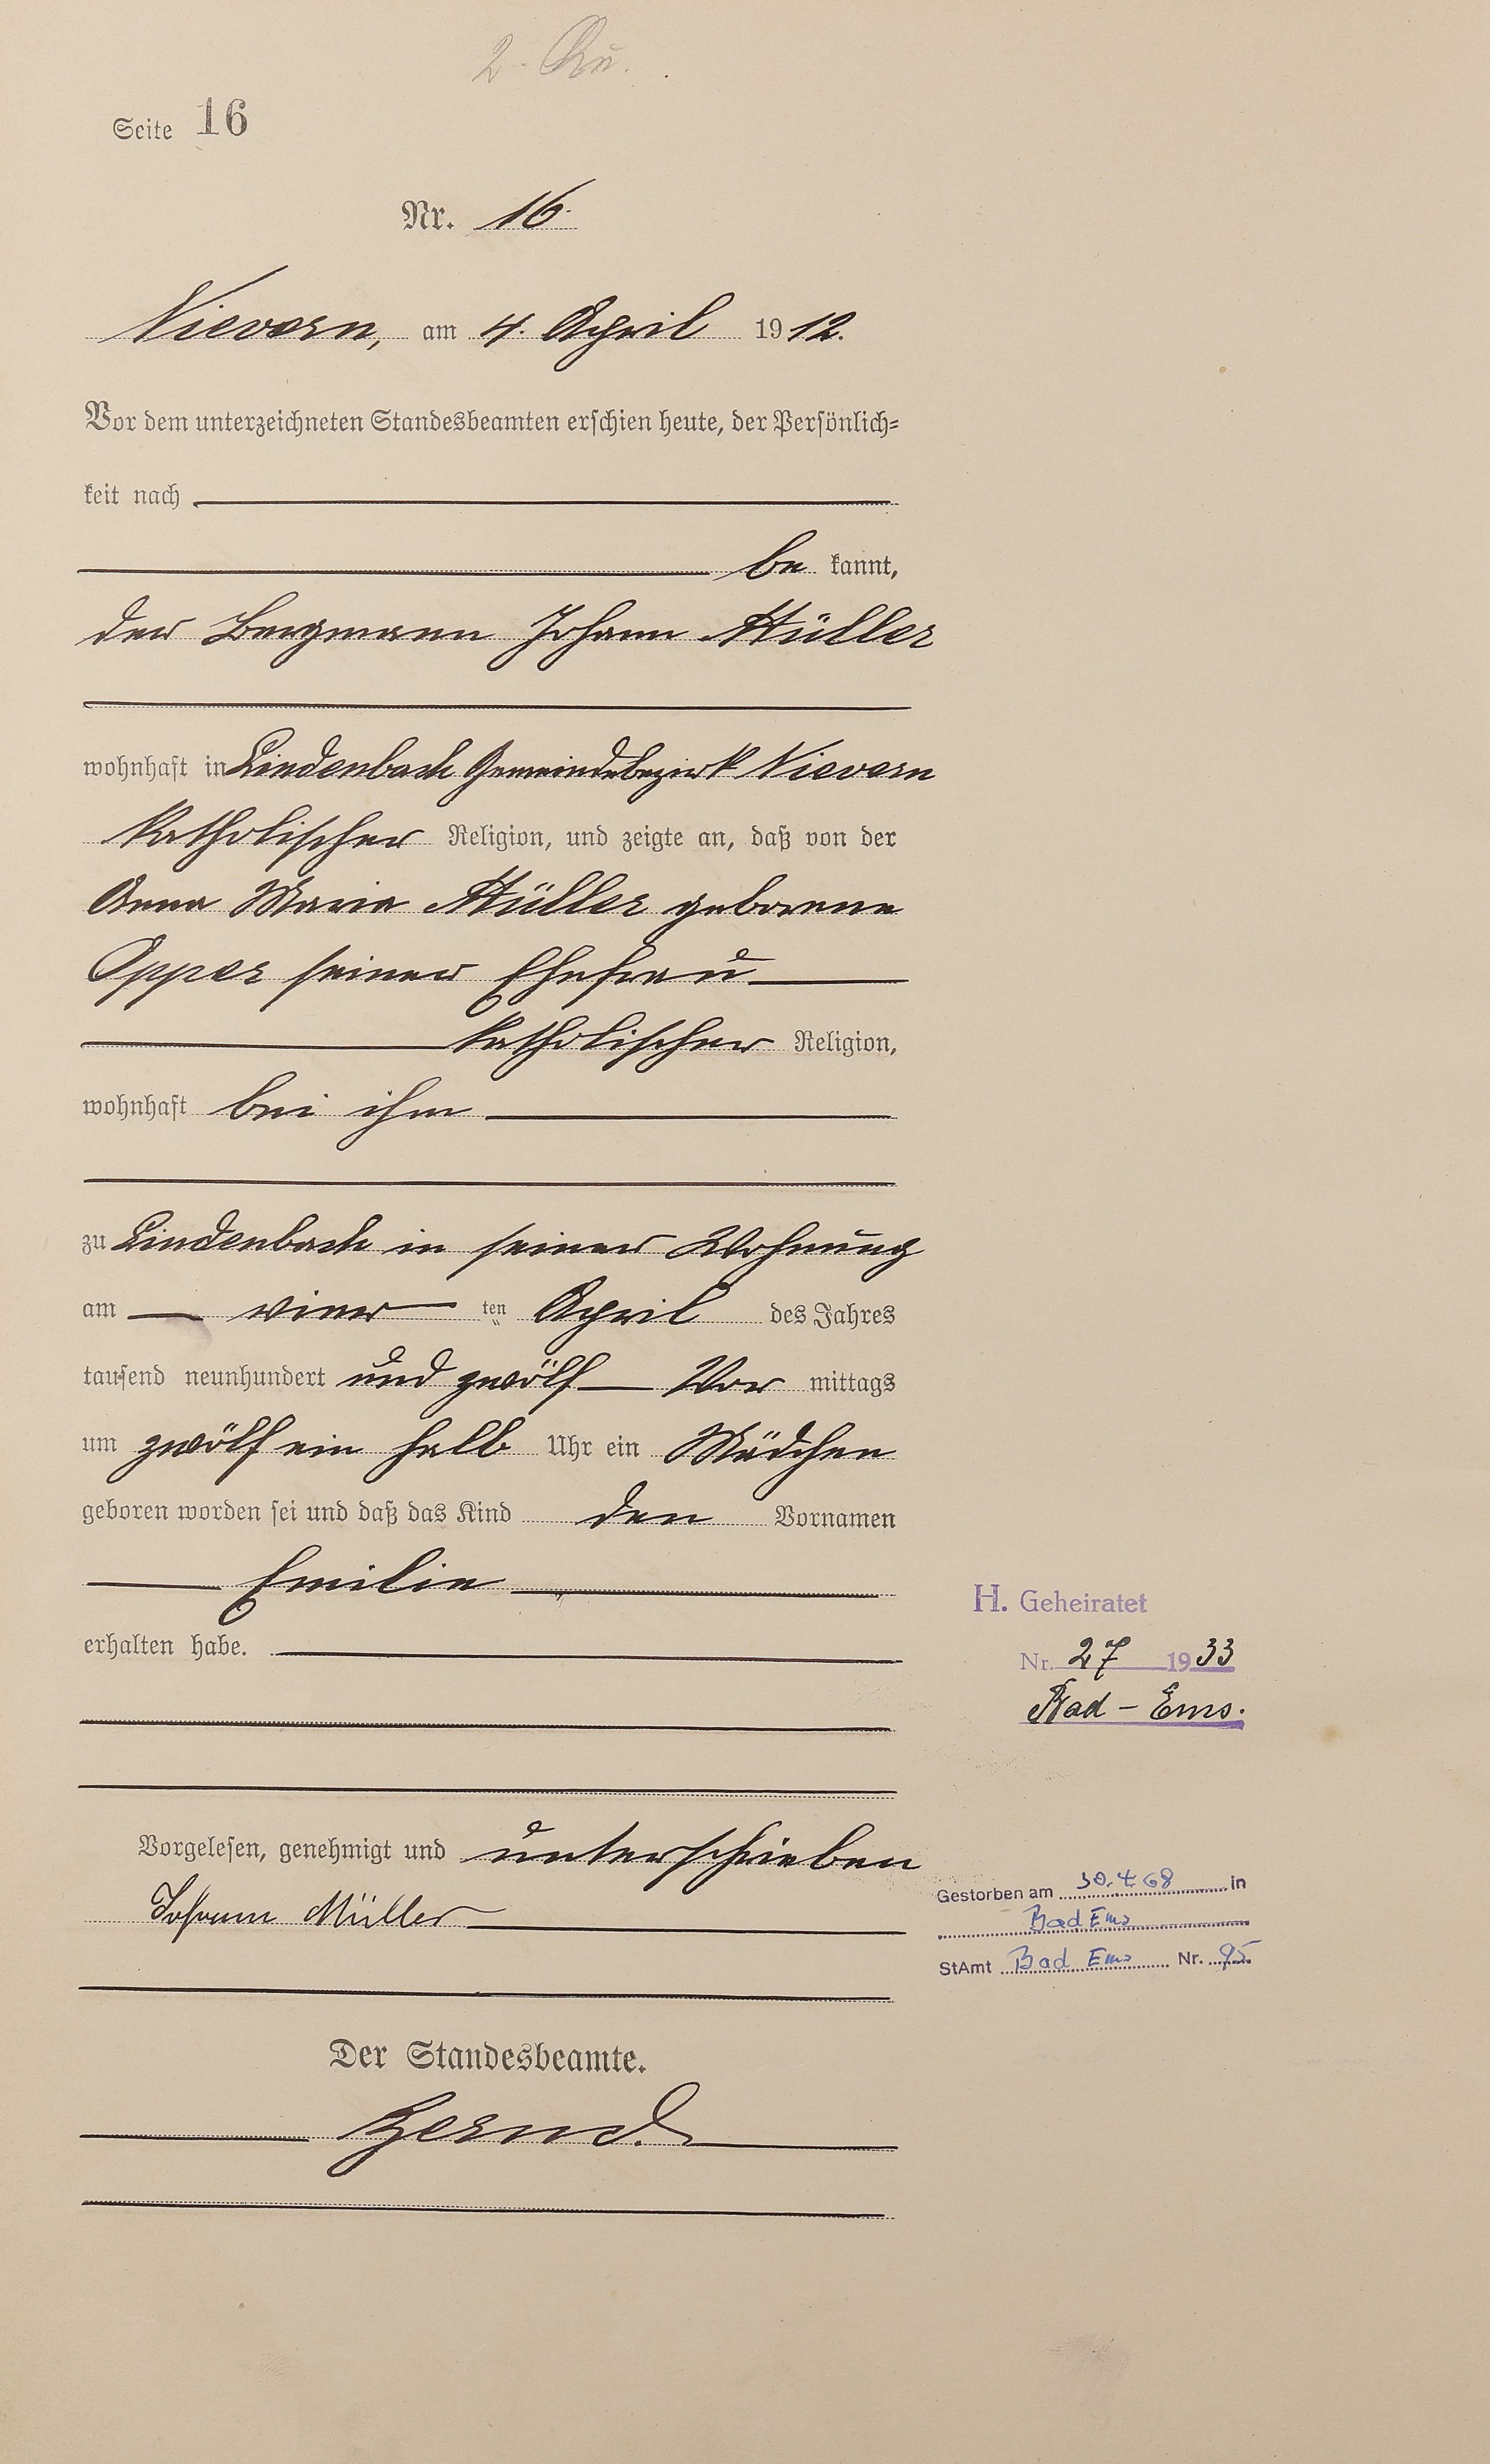 2.
Seite 16
Nr. 16.
Nievern, am 4. April 1912.
Vor dem unterzeichneten Standesbeamten erschien heute, der Persönlich=
keit nach
be kannt,
der Bergmann Johann Müller
wohnhaft in Lindenbach Gemeindebezirk Nievern
katholischer Religion, und zeigte an, daß von der
Anna Maria Müller geborene
Opper seiner Ehefrau
katholischer Religion,
wohnhaft bei ihm
zu Lindenbach in seiner Wohnung
am vier ten April des Jahres
tausend neunhundert und zwölf Vor mittags
um zwölf ein halb Uhr ein Mädchen
geboren worden sei und daß das Kind den Vornamen
Emilie
erhalten habe.
H. Geheiratet
Nr. 27 1933
Bad-Ems.
Vorgelesen, genehmigt und unterschrieben
Johann Müller
Gestorben am 30.4.68 in
Bad Ems
StAmt Bad Ems Nr. 95
Der Standesbeamte.